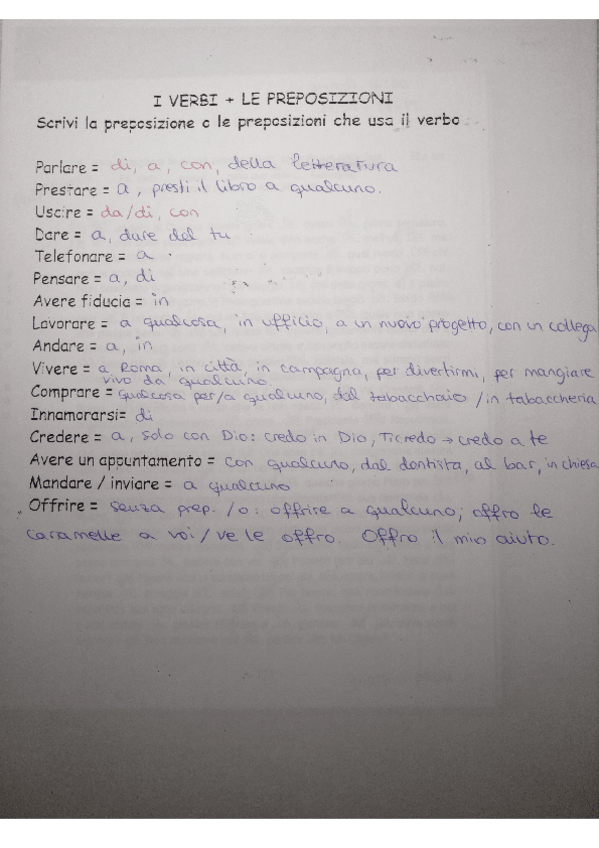 I VERBI + LE PREPOSIZIONI
Scrivi la preposizione o le preposizioni che usa il verbo
Parlare = di, a, con, della letteratura
Prestare = a, presti il libro a qualcuno.
Uscire = da/di, con
Dare = a, dare del tu
Telefonare = a
Pensare = a, di
Avere fiducia = in
Lavorare = a qualcosa, in ufficio, a un nuovo progetto, con un collega
Andare = a, in
Vivere = a Roma, in città, in campagna, per divertirmi, per mangiare
vivo da qualcuno
Comprare = qualcosa per/a qualcuno, dal tabacchaio / in tabaccheria
Innamorarsi= di
Credere = a, solo con Dio: credo in Dio, Ti credo → credo a te
Avere un appuntamento = con qualcuno, dal dentista, al bar, in chiesa
Mandare / inviare = a qualcuno
Offrire = senza prep. /o: offrire a qualcuno; offro le
caramelle a voi / ve le offro. Offro il mio aiuto.